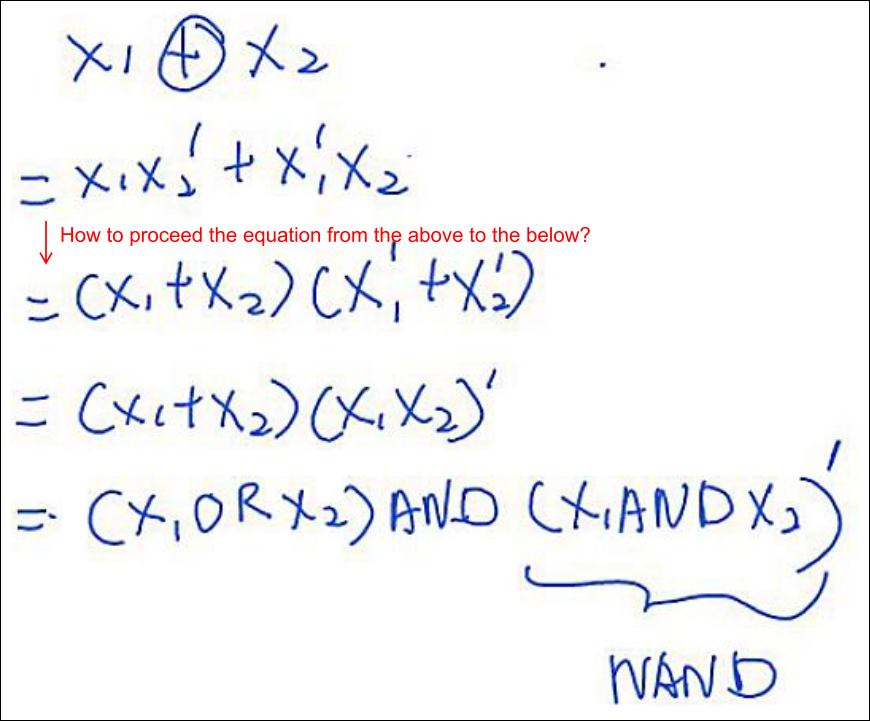 x₁ ⊕ x₂
= x₁x₂' + x₁'x₂
How to proceed the equation from the above to the below?
= (x₁+x₂)(x₁'+x₂')
= (x₁+x₂)(x₁x₂)'
= (x₁ OR x₂) AND (x₁ AND x₂)'
NAND